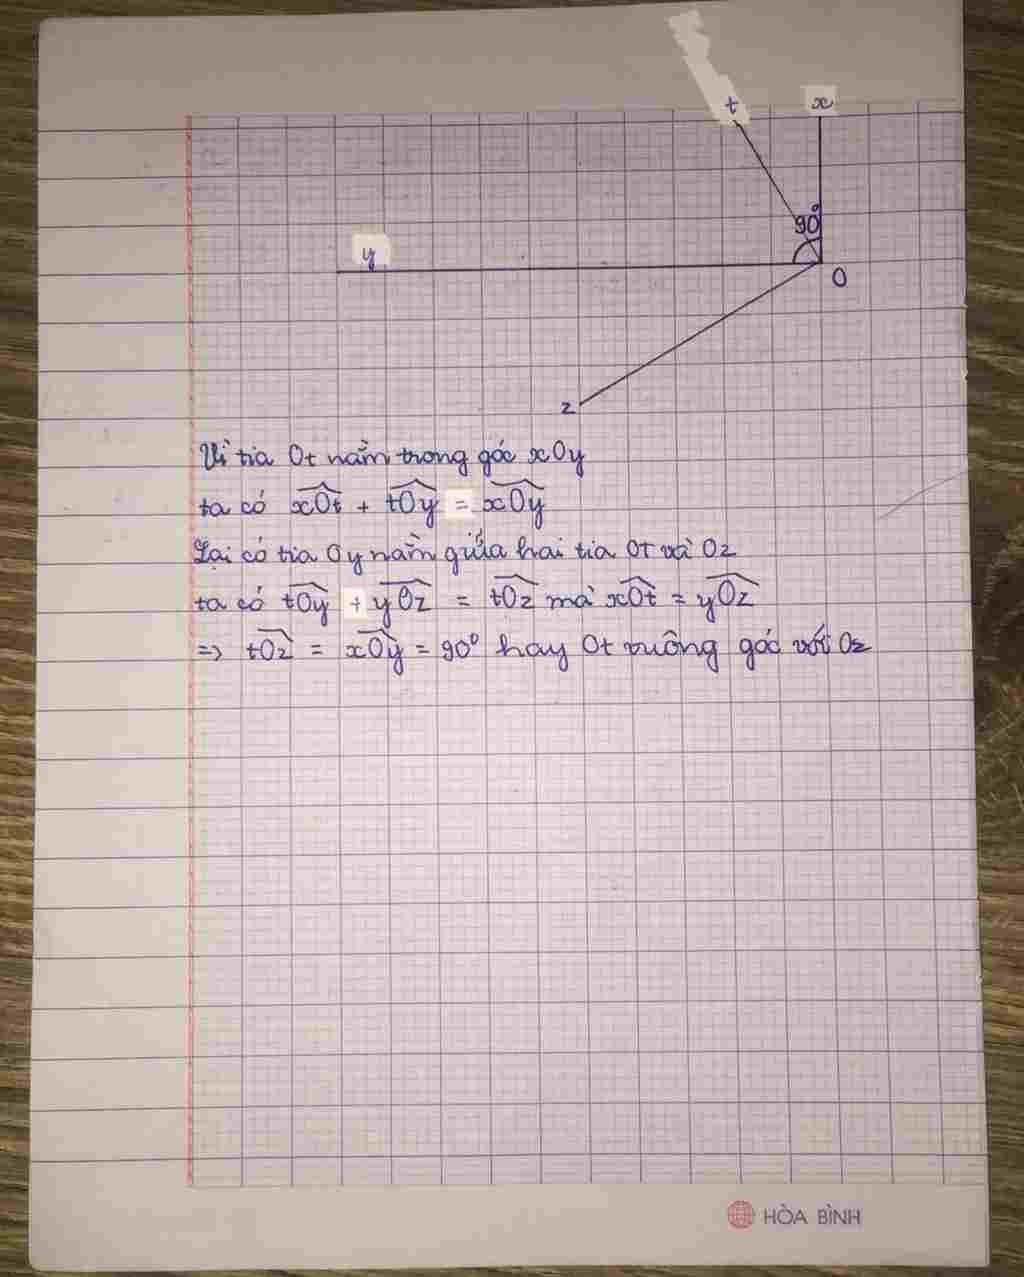 t x
90°
y
O
z
Vì tia Ot nằm trong góc xOy
ta có xOt + tOy = xOy
Lại có tia Oy nằm giữa hai tia OT và Oz
ta có tOy + yOz = tOz mà xOt = yOz
=> tOz = xOy = 90° hay Ot vuông góc với Oz
HÒA BÌNH